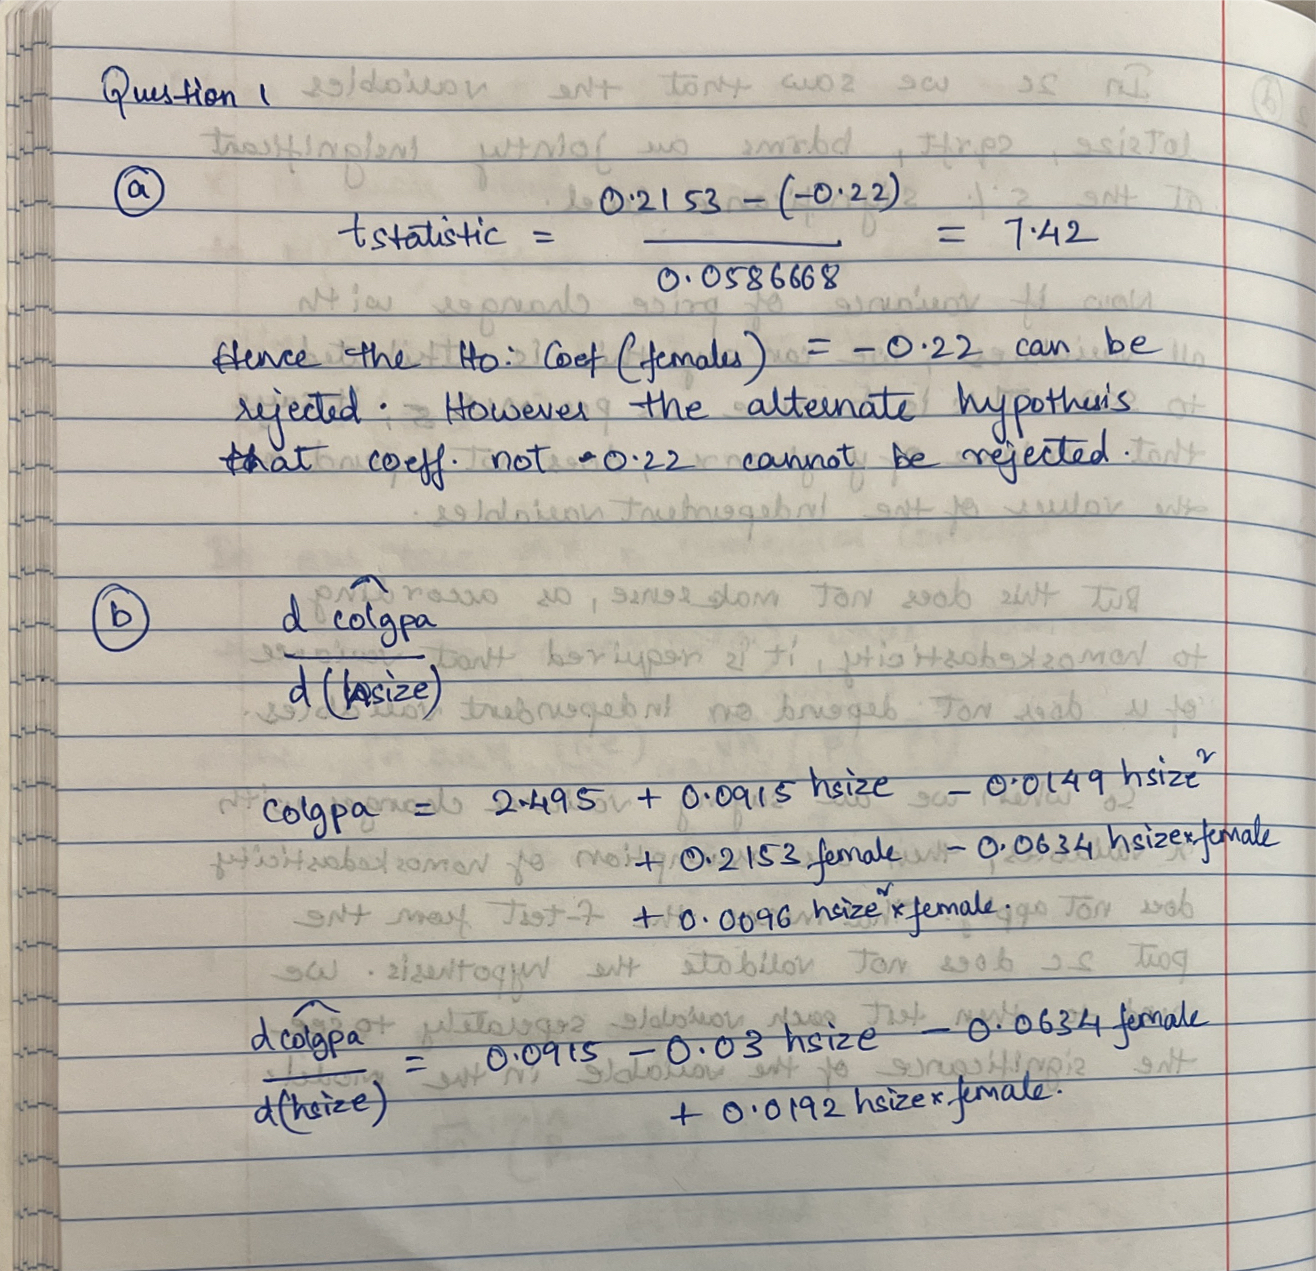 Question 1
(a)
tstatistic = 0.2153 - (-0.22) / 0.0586668 = 7.42
Hence the Ho: Coef (females) = -0.22 can be
rejected. However the alternate hypothesis
that coeff. not -0.22 cannot be rejected.
(b)
d colgpa^
d (hsize)
colgpa = 2.495 + 0.0915 hsize - 0.0149 hsize²
+ 0.2153 female - 0.0634 hsize×female
+ 0.0096 hsize² × female.
d colgpa^ / d(hsize) = 0.0915 - 0.03 hsize - 0.0634 female
+ 0.0192 hsize × female.